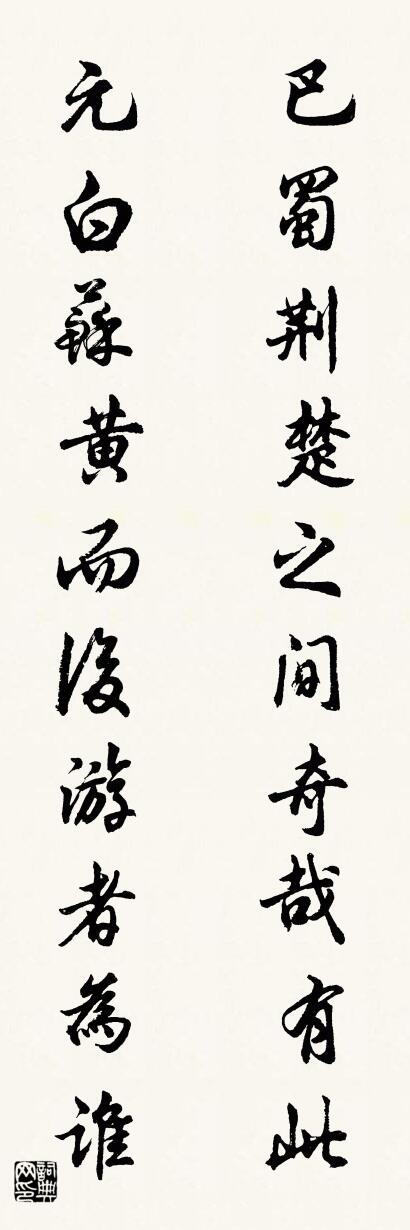 巴蜀荆楚之间奇哉有此
元白蘇黄而後游者為谁
詞典網印